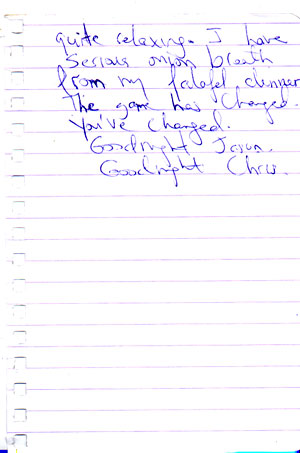 quite relaxing. I have
Serious onion breath
from my falafel dinner
The game has changed.
You've changed.
Goodnight Jason.
Goodnight Chris.